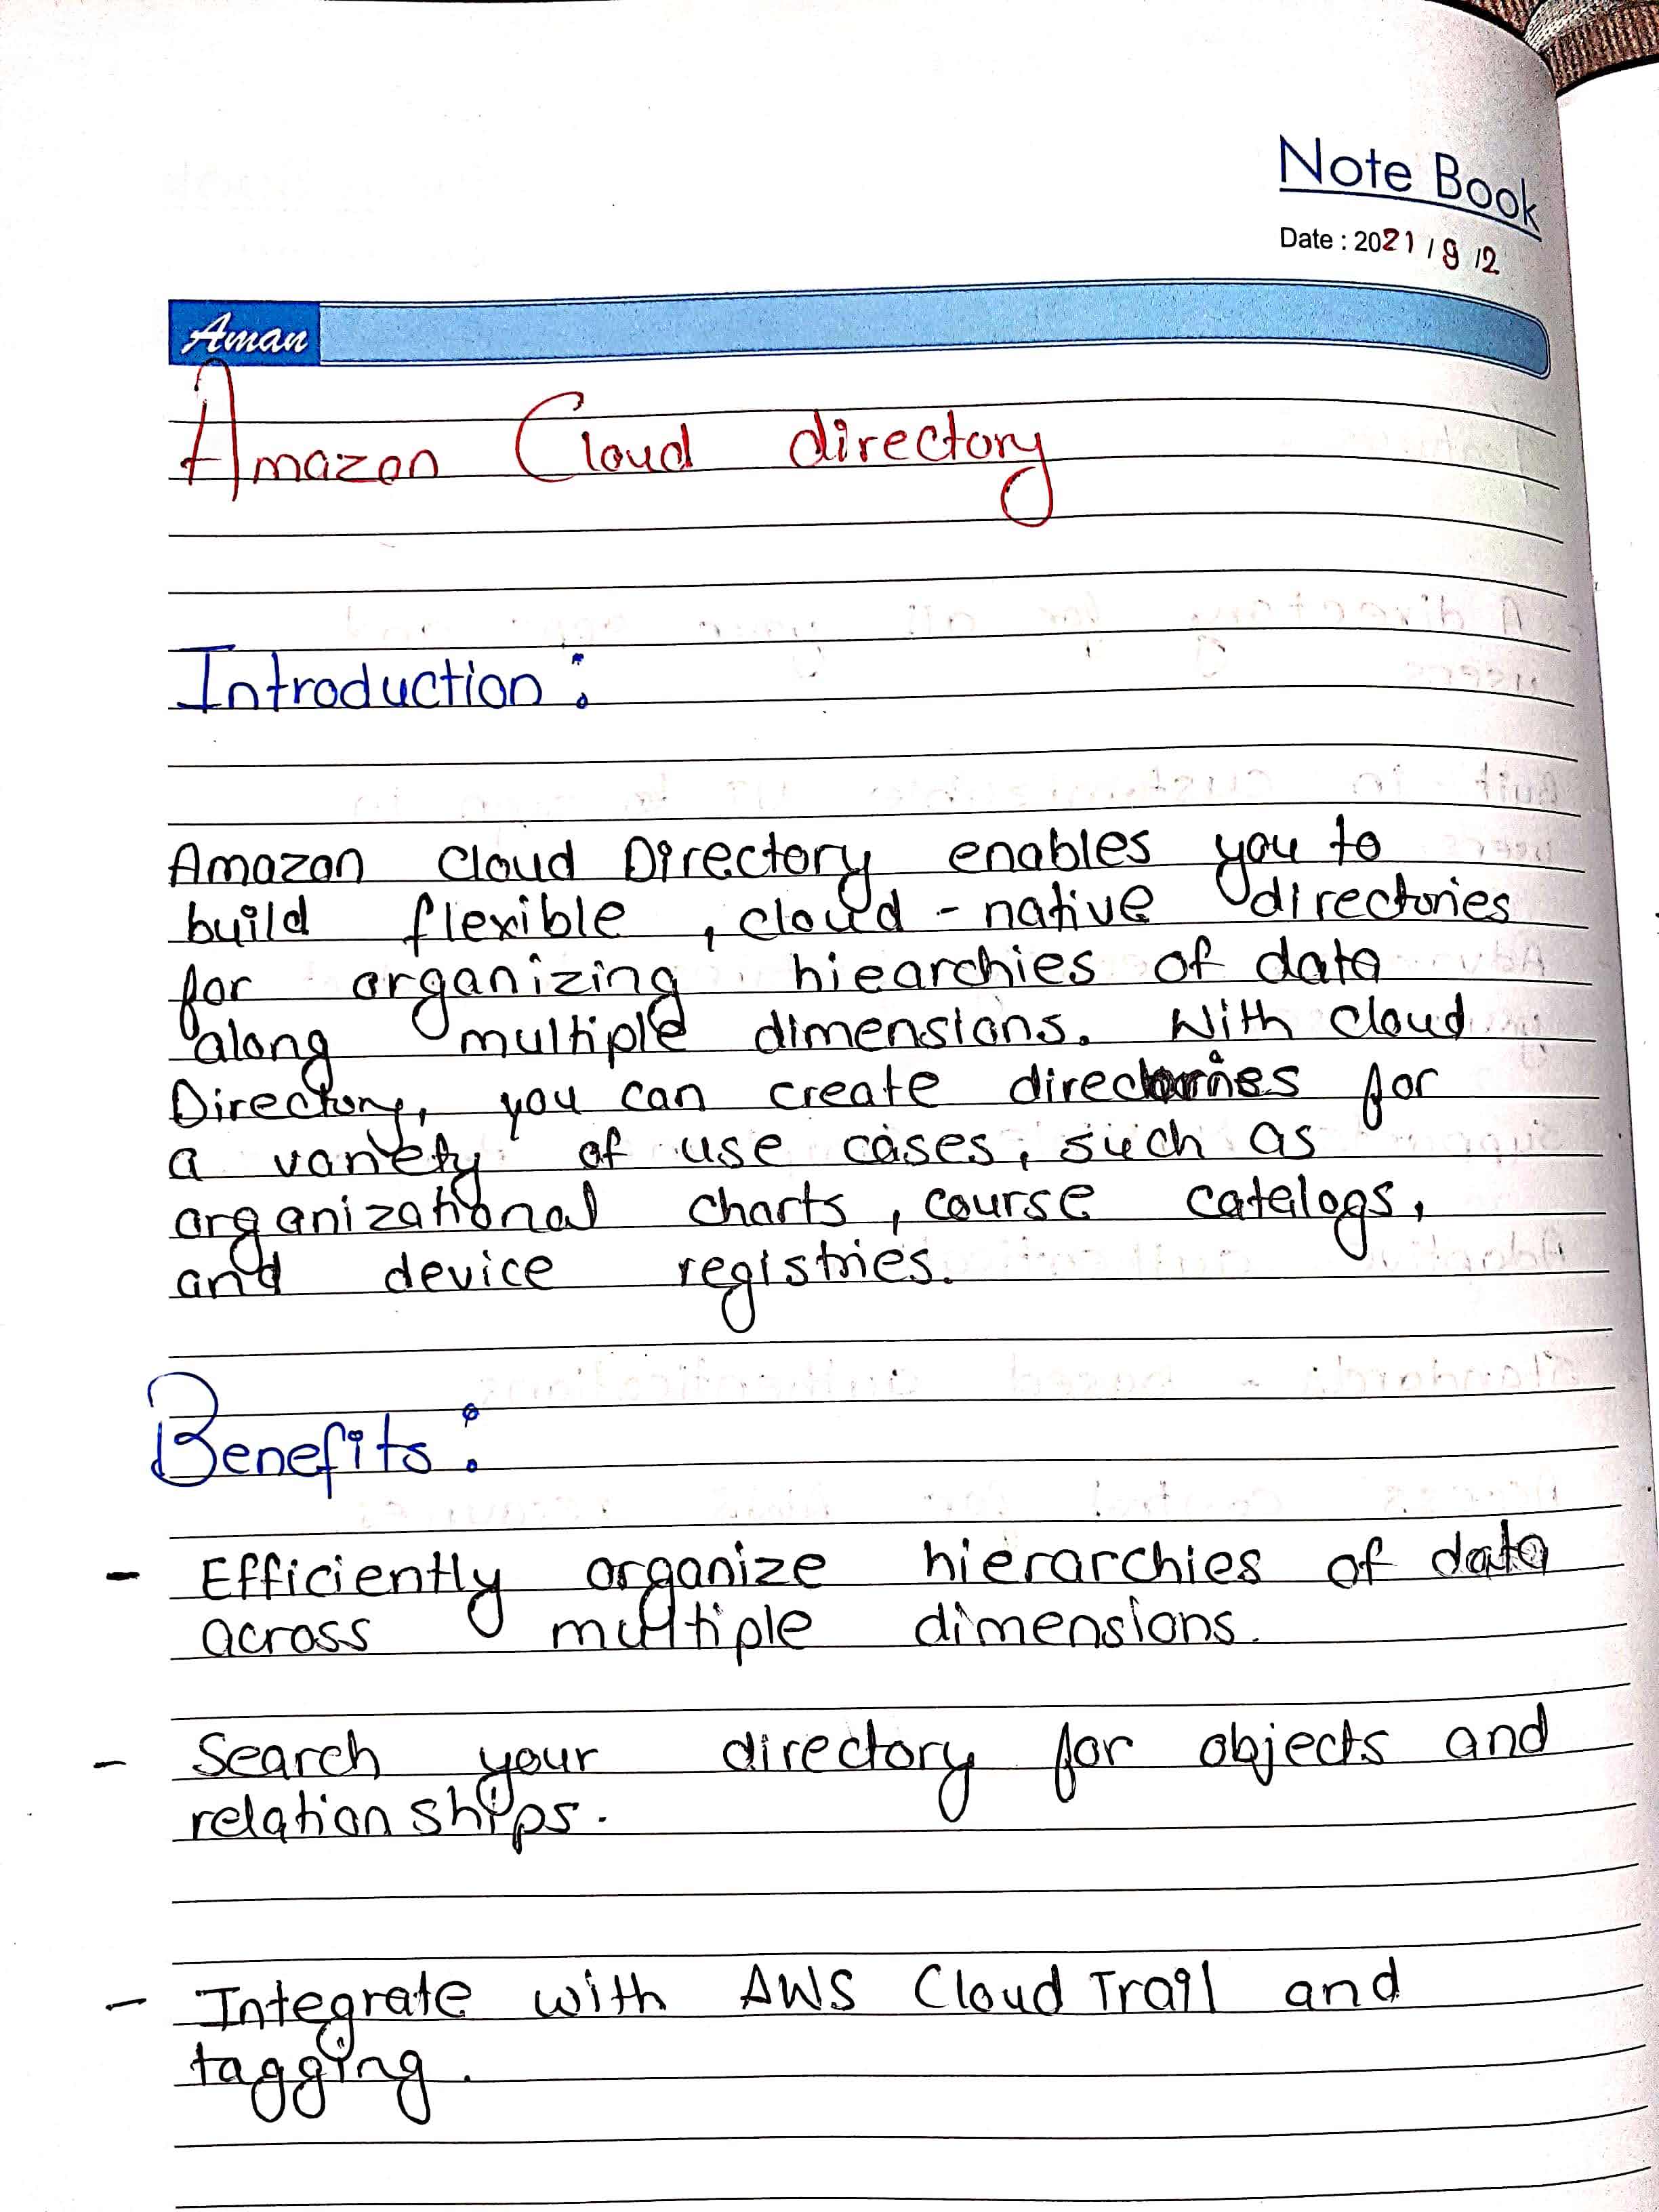 Note Book
Date : 2021 / 9 / 2
Aman
Amazon Cloud directory
Introduction :
Amazon Cloud Directory enables you to
build flexible, cloud-native directories
for organizing hiearchies of data
along multiple dimensions. With Cloud
Directory, you can create directories for
a variety of use cases, such as
organizational charts, course catalogs,
and device registries.
Benefits :
- Efficiently organize hierarchies of data
across multiple dimensions.
- Search your directory for objects and
relationships.
- Integrate with AWS Cloud Trail and
tagging.